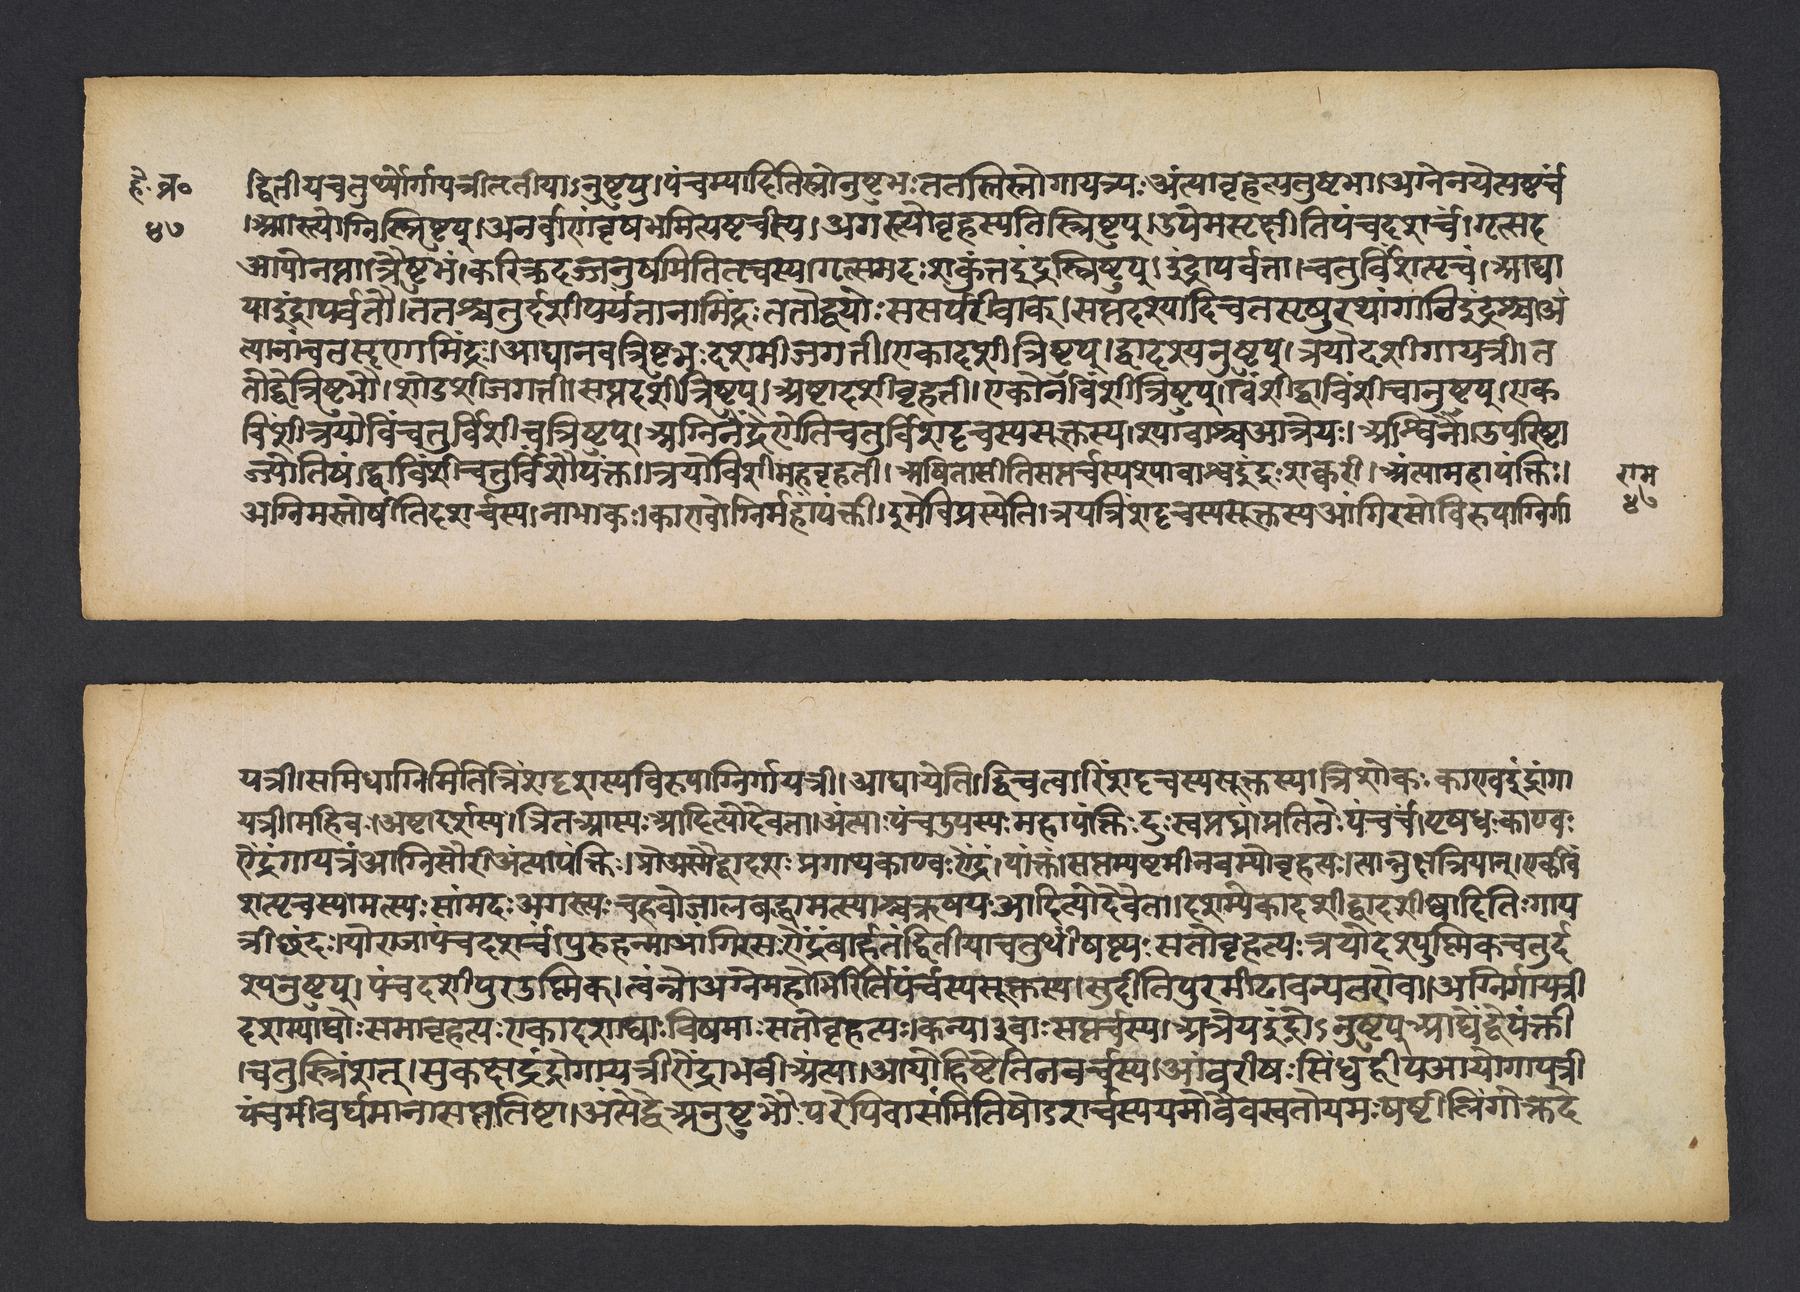 हौ. व्र०
४७
द्वितीयचतुर्थ्योर्गायत्रीतृतीयाऽनुष्टुप्।पंचम्यादितिस्रोनुष्टुभः ततस्तिस्रोगायत्र्यः अंत्याबृहत्यनुष्टुभा।अग्नेनयेत्यष्टर्च
।अगस्त्योग्निस्त्रिष्टुप्।अनर्वाणंवृषभमित्यष्टर्चस्य। अगस्त्योबृहस्पतिस्त्रिष्टुप्।उपेमसृक्षीतिपंचदशर्च। गृत्समद
अपोनप्ता।त्रैष्टुभं।कनिक्रदज्जनुषमितितृचस्य।गृत्समदः शकुंतइंद्रस्त्रिष्टुप्।इंद्रापर्वता।चतुर्विंशत्यृचं।आद्या
याइंद्रापर्वतौ।ततश्चतुर्दशीपर्यंतानामिंद्रः ततोद्वयोः ससर्परीवाक्।सप्तदश्यादिचतसृषुरथांगानिइंद्रश्च।अं
त्यानांचतसृणामिंद्रः।आद्यानवत्रिष्टुभः दशमीजगती।एकादशीत्रिष्टुप्।द्वादश्यनुष्टुप्।त्रयोदशीगायत्री।त
तोद्वेत्रिष्टुभौ।षोडशीजगती।सप्तदशीत्रिष्टुप्।अष्टादशीबृहती।एकोनविंशीत्रिष्टुप्।विंशीद्वाविंशीचानुष्टुप्।एक
विंशीत्रयोविंचतुर्विंशीचत्रिष्टुप्।अग्निनेंद्रेणेतिचतुर्विंशदृचस्यसूक्तस्य।श्यावाश्व आत्रेयः।अश्विनौ।उपरिष्टा
ज्योतिषं।द्वाविंशीचतुर्विंशौपंक्ता।त्रयोविंशीमहबृहती।अवितासीतिसप्तर्चस्यश्यावाश्वइंद्रः शक्वरी।अंत्यामहापंक्तिः।
अग्निमस्तोषीतिदशर्चस्य।नाभाकः।काण्वोग्निर्महापंक्ती।इमेविप्रस्येति।त्रयत्रिंशदृचस्यसूक्तस्यआंगिरसोविरूपाग्निर्गा
राम
४७
यत्री।समिधाग्निमितित्रिंशदृशस्यविरूपाग्निर्गायत्री।आघायेति।द्विचत्वारिंशदृचस्यसूक्तस्य।त्रिशोकः काण्वइंद्रोगा
यत्री।महिवः।अष्टादशर्स्य।त्रितआस्यः आदित्योदेवता।अंत्याः पंचउपस्यः महापंक्तिः दुःस्वप्नघ्नं।प्रतितेः पंचर्चं।पृषध्रः काण्वः
ऐंद्रंगायत्रंआग्निसौरीअंत्यापंक्तिः।प्रोअस्मैद्वादशः प्रगाथकाण्वः ऐंद्रं।पांक्तं।सप्तम्यष्टमीनवम्योबृहत्यः।त्यान्नुक्षत्रियान्।एकविं
शत्यृचस्यामत्स्यः सांमदः अगस्त्यः चहवोजालबद्धामत्स्याश्चऋषयः आदित्योदेवता।दशम्येकादशीद्वादशीष्वादितिः गाय
त्रीछंदः।योराजापंचदशर्च।पुरुहन्माआंगिरसः ऐंद्रंबार्हतंद्वितीयाचतुर्थीषष्ट्यः सतोबृहत्यः त्रयोदश्युष्णिकचतुर्द
श्यनुष्टुप्।पंचदशीपुरउष्णिक्।त्वंन्नोअग्नेमहोभिरितिपंचर्चस्यसूक्तस्य।सुदीतिपुरमीढावन्यतरोवा।अग्निर्गायत्री
दशाम्याद्यौः समाबृहत्यः एकादशाद्याः विषमाः सतोबृहत्यः।कन्या३वाः सप्तर्चस्य।अत्रेयइंद्रोऽनुष्टुप्आद्येद्वेपंक्ती
।चतुस्त्रिंशत्।सुकक्षोइंद्रोगायत्रीऐंद्राभवीअंत्या।आपोहिष्टेतिनवर्चस्य।आंबरीषः सिंधुद्वीपआपोगायत्री
पंचमीवर्धमानासप्तप्रतिष्टा।अंत्येद्वेअनुष्टुभौ परेपिवासंमितिषोऽशर्चस्ययमोवैवस्वतोयमः षष्टीलिंगोक्तदे